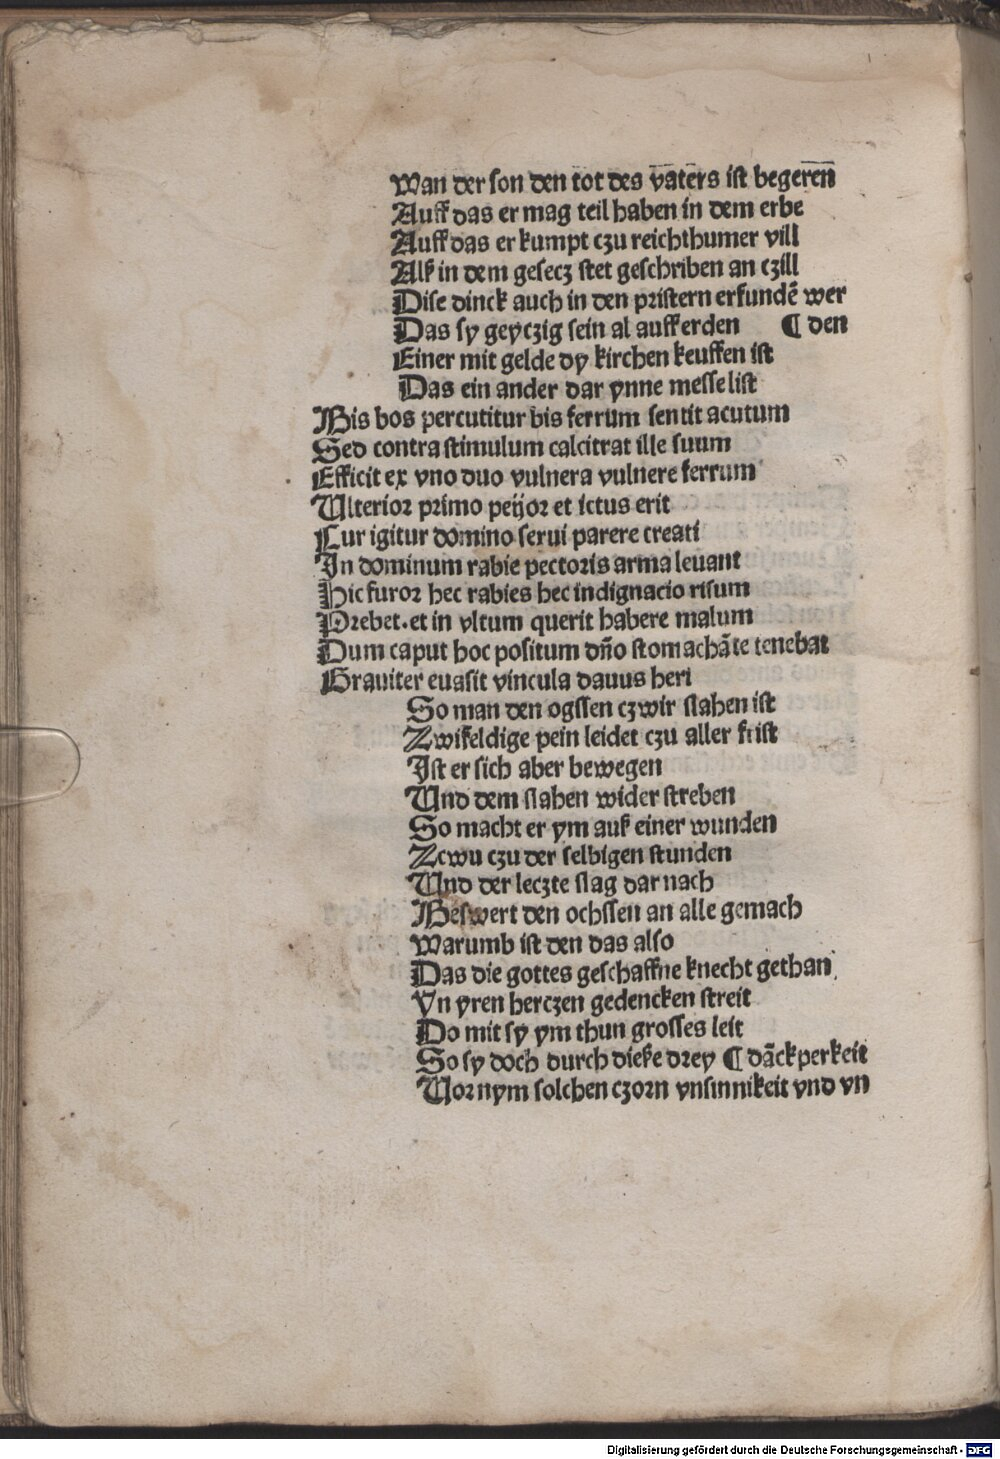 Wan der son den tot des vaters ist begeren
Auff das er mag teil haben in dem erbe
Auff das er kumpt czu reichthumer vill
Alß in dem gesecz stet geschriben an czill
Dise dinck auch in den pristern erfundē wer
Das sy geyczig sein al auff erden ¶ den
Einer mit gelde dy kirchen keuffen ist
Das ein ander dar ynne messe list
Bis bos percutitur bis ferrum sentit acutum
Sed contra stimulum calcitrat ille suum
Efficit ex vno duo vulnera vulnere ferrum
Ulterior primo peijor et ictus erit
Cur igitur domino serui parere creati
In dominum rabie pectoris arma leuant
Hic furor hec rabies hec indignacio risum
Prebet. et in vltum querit habere malum
Dum caput hoc positum dño stomachāte tenebat
Grauiter euasit vincula dauus heri
So man den ogssen czwir slahen ist
Zwifeldige pein leidet czu aller frist
Ist er sich aber bewegen
Und dem slahen wider streben
So macht er ym auß einer wunden
Zcwu czu der selbigen stunden
Und der leczte slag dar nach
Beswert den ochssen an alle gemach
Warumb ist den das also
Das die gottes geschaffne knecht gethan
Yn yren herczen gedencken streit
Do mit sy ym thun grosses leit
So sy doch durch dieße drey ¶ dāckperkeit
Vor nym solchen czorn vnsinnikeit vnd vn
Digitalisierung gefördert durch die Deutsche Forschungsgemeinschaft - DFG